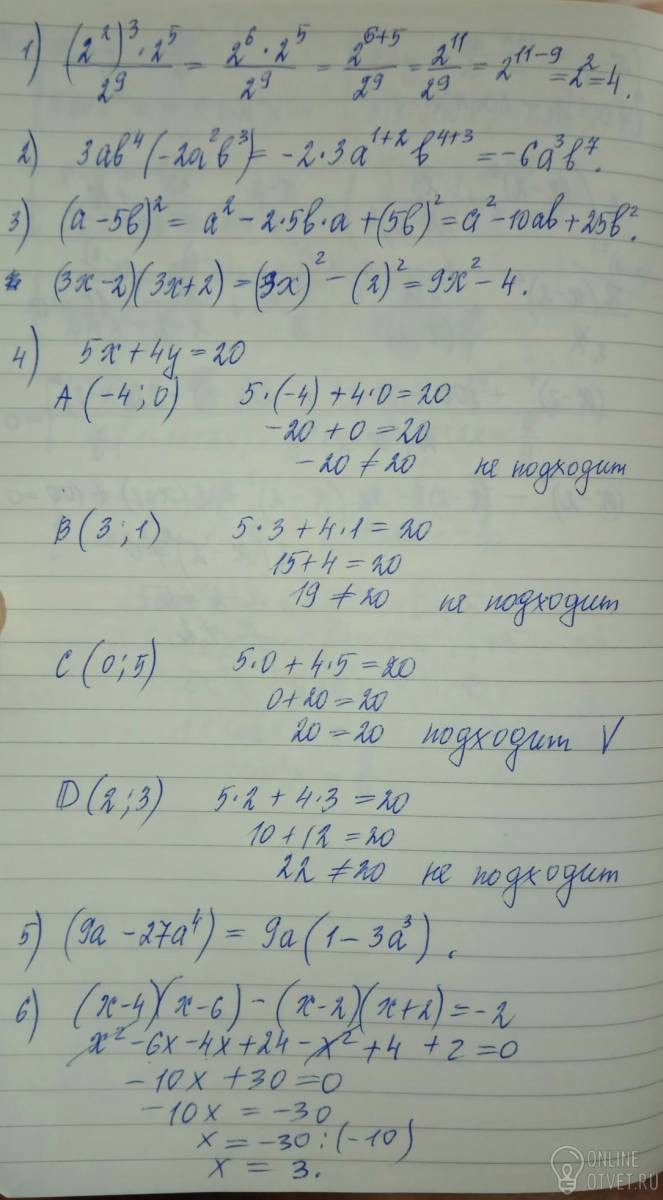 1) (2²)³·2⁵/2⁹ = 2⁶·2⁵/2⁹ = 2⁶⁺⁵/2⁹ = 2¹¹/2⁹ = 2¹¹⁻⁹ = 2² = 4.
2) 3ab⁴(-2a²b³) = -2·3a¹⁺²b⁴⁺³ = -6a³b⁷.
3) (a-5b)² = a² - 2·5b·a + (5b)² = a² - 10ab + 25b².
(3x-2)(3x+2) = (3x)² - (2)² = 9x² - 4.
4) 5x + 4y = 20
A (-4; 0) 5·(-4) + 4·0 = 20
-20 + 0 = 20
-20 ≠ 20 не подходит
B (3; 1) 5·3 + 4·1 = 20
15 + 4 = 20
19 ≠ 20 не подходит
C (0; 5) 5·0 + 4·5 = 20
0 + 20 = 20
20 = 20 подходит V
D (2; 3) 5·2 + 4·3 = 20
10 + 12 = 20
22 ≠ 20 не подходит
5) (9a - 27a⁴) = 9a(1 - 3a³).
6) (x-4)(x-6) - (x-2)(x+2) = -2
x² - 6x - 4x + 24 - x² + 4 + 2 = 0
-10x + 30 = 0
-10x = -30
x = -30 : (-10)
x = 3.
ONLINE
OTVET.RU